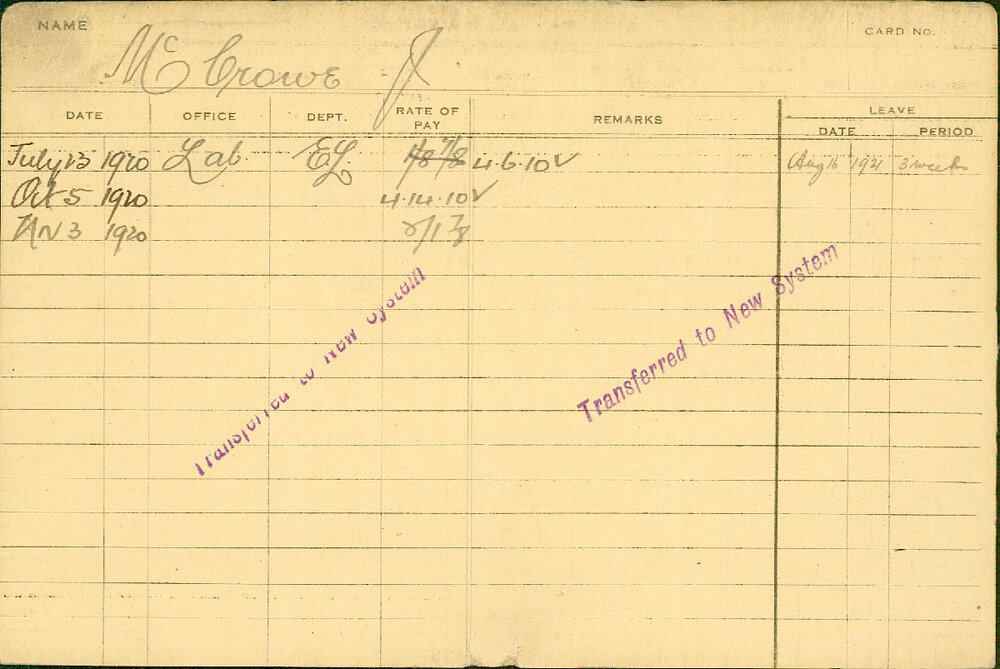 NAME
CARD NO.
Mc Crowe J
DATE OFFICE DEPT. RATE OF PAY REMARKS LEAVE
DATE PERIOD
July 23 1920 Lab. EL 1/8 7/8 4.6.10 √ Aug 16 1921 3 weeks
Oct 5 1920 4.14.10 √
Nov 3 1920 2/1 7/8
Transferred to New System
Transferred to New System